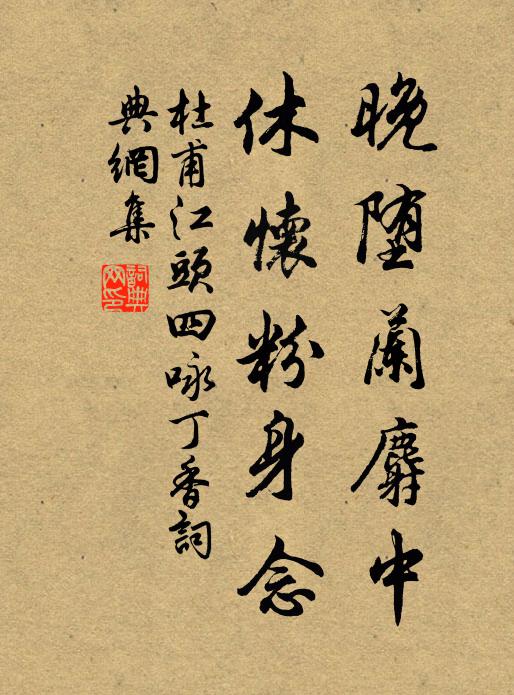 晚堕蘭麝中
休懷粉身念
杜甫江頭四咏丁香詞
典網集
詞典網印